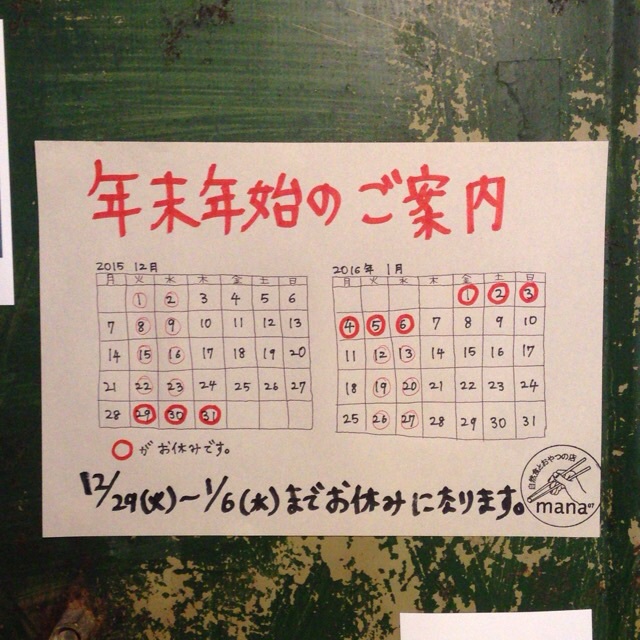 年末年始のご案内
2015 12月
月 火 水 木 金 土 日
1 2 3 4 5 6
7 8 9 10 11 12 13
14 15 16 17 18 19 20
21 22 23 24 25 26 27
28 29 30 31
2016年 1月
月 火 水 木 金 土 日
1 2 3
4 5 6 7 8 9 10
11 12 13 14 15 16 17
18 19 20 21 22 23 24
25 26 27 28 29 30 31
○がお休みです。
12/29(火)〜1/6(水)までお休みになります。
自然食とおやつの店
mana